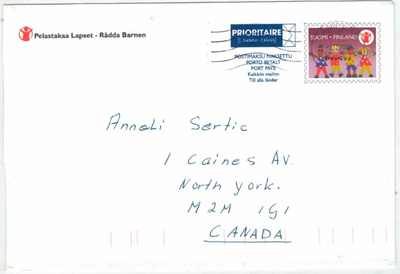 Pelastakaa Lapset - Rädda Barnen
PRIORITAIRE
POSTIMAKSU MAKSETTU
PORTO BETALT
PORT PAYÉ
Kaikkiin maihin
Till alla länder
SUOMI • FINLAND
Anneli Sertic
1 Caines Av.
North york.
M2M 1G1
CANADA